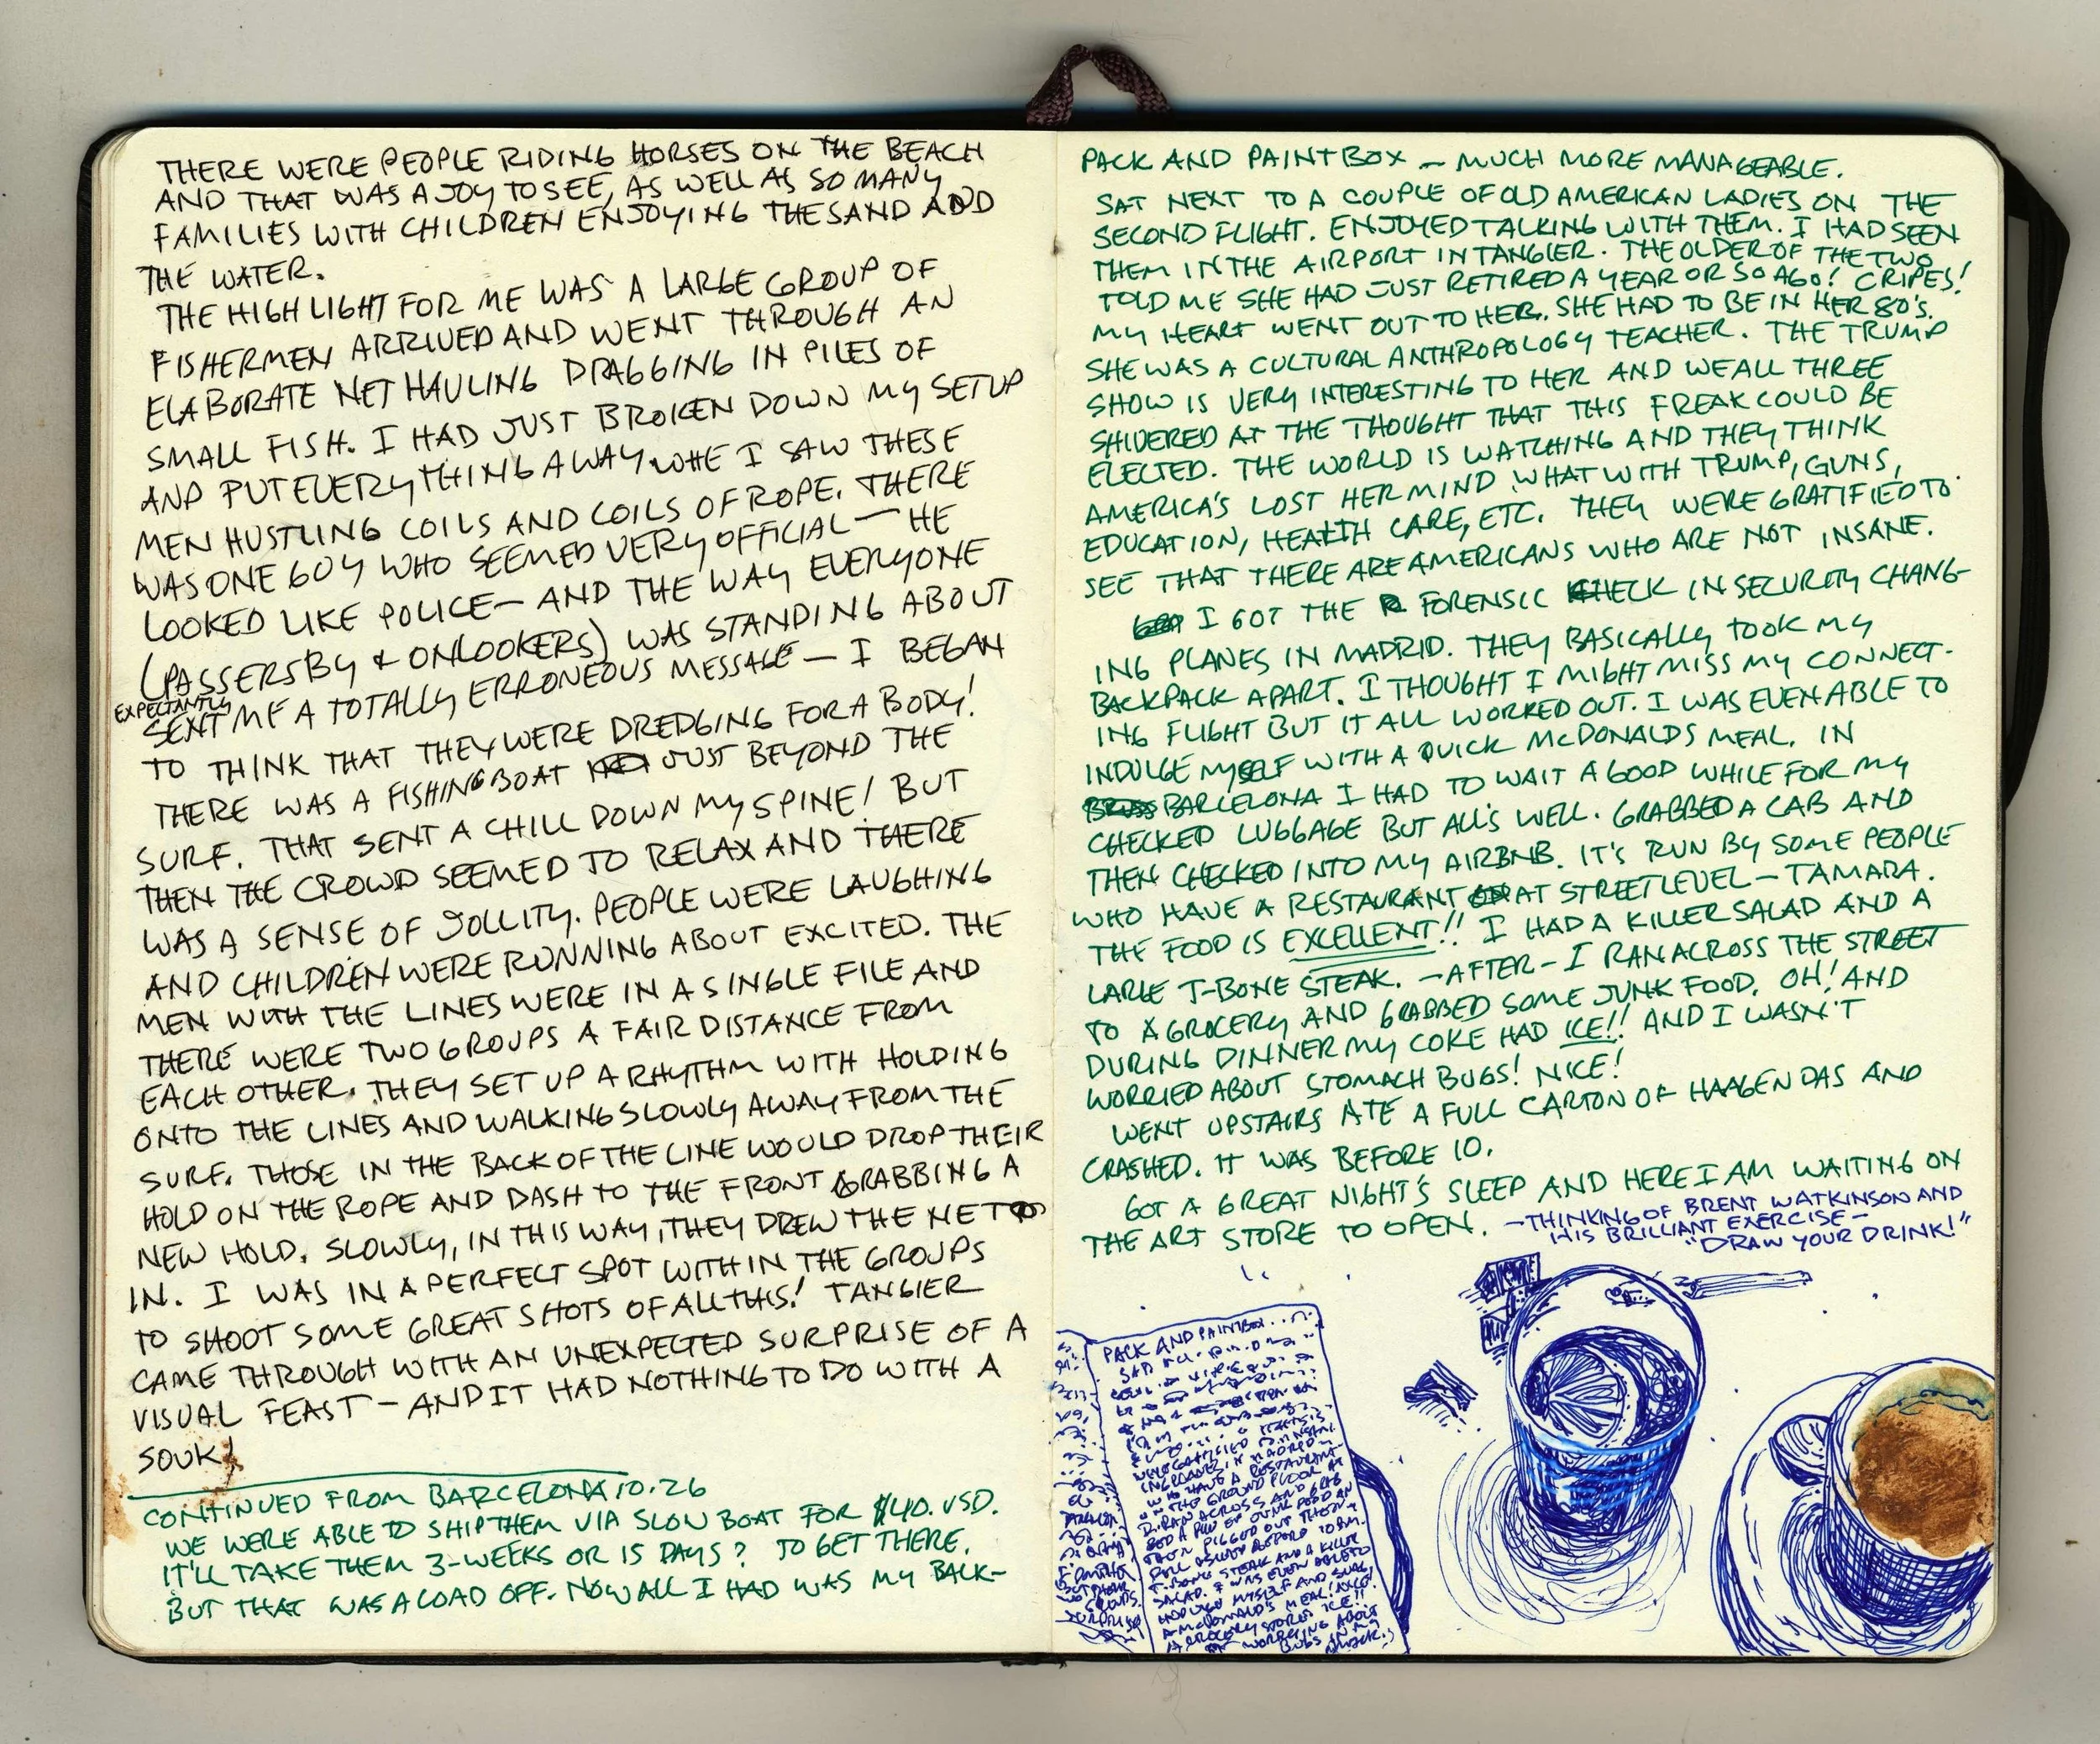 THERE WERE PEOPLE RIDING HORSES ON THE BEACH
AND THAT WAS A JOY TO SEE, AS WELL AS SO MANY
FAMILIES WITH CHILDREN ENJOYING THE SAND AND
THE WATER.
THE HIGHLIGHT FOR ME WAS A LARGE GROUP OF
FISHERMEN ARRIVED AND WENT THROUGH AN
ELABORATE NET HAULING DRAGGING IN PILES OF
SMALL FISH. I HAD JUST BROKEN DOWN MY SETUP
AND PUT EVERYTHING AWAY WHE I SAW THESE
MEN HUSTLING COILS AND COILS OF ROPE. THERE
WAS ONE GUY WHO SEEMED VERY OFFICIAL — HE
LOOKED LIKE POLICE — AND THE WAY EVERYONE
(PASSERSBY & ONLOOKERS) WAS STANDING ABOUT
EXPECTANTLY
SENT ME A TOTALLY ERRONEOUS MESSAGE — I BEGAN
TO THINK THAT THEY WERE DREDGING FOR A BODY!
THERE WAS A FISHING BOAT JUST BEYOND THE
SURF. THAT SENT A CHILL DOWN MY SPINE! BUT
THEN THE CROWD SEEMED TO RELAX AND THERE
WAS A SENSE OF JOLLITY. PEOPLE WERE LAUGHING
AND CHILDREN WERE RUNNING ABOUT EXCITED. THE
MEN WITH THE LINES WERE IN A SINGLE FILE AND
THERE WERE TWO GROUPS A FAIR DISTANCE FROM
EACH OTHER. THEY SET UP A RHYTHM WITH HOLDING
ONTO THE LINES AND WALKING SLOWLY AWAY FROM THE
SURF. THOSE IN THE BACK OF THE LINE WOULD DROP THEIR
HOLD ON THE ROPE AND DASH TO THE FRONT GRABBING A
NEW HOLD. SLOWLY, IN THIS WAY, THEY DREW THE NET
IN. I WAS IN A PERFECT SPOT WITHIN THE GROUPS
TO SHOOT SOME GREAT SHOTS OF ALL THIS! TANGIER
CAME THROUGH WITH AN UNEXPECTED SURPRISE OF A
VISUAL FEAST — AND IT HAD NOTHING TO DO WITH A
SOUK!
CONTINUED FROM BARCELONA 10.26
WE WERE ABLE TO SHIP THEM VIA SLOW BOAT FOR $40. USD.
IT'LL TAKE THEM 3-WEEKS OR 15 DAYS? TO GET THERE.
BUT THAT WAS A LOAD OFF. NOW ALL I HAD WAS MY BACK-
PACK AND PAINTBOX — MUCH MORE MANAGEABLE.
SAT NEXT TO A COUPLE OF OLD AMERICAN LADIES ON THE
SECOND FLIGHT. ENJOYED TALKING WITH THEM. I HAD SEEN
THEM IN THE AIRPORT IN TANGIER. THE OLDER OF THE TWO
TOLD ME SHE HAD JUST RETIRED A YEAR OR SO AGO! CRIPES!
MY HEART WENT OUT TO HER. SHE HAD TO BE IN HER 80'S.
SHE WAS A CULTURAL ANTHROPOLOGY TEACHER. THE TRUMP
SHOW IS VERY INTERESTING TO HER AND WE ALL THREE
SHIVERED AT THE THOUGHT THAT THIS FREAK COULD BE
ELECTED. THE WORLD IS WATCHING AND THEY THINK
AMERICA'S LOST HER MIND WHAT WITH TRUMP, GUNS,
EDUCATION, HEALTH CARE, ETC. THEY WERE GRATIFIED TO
SEE THAT THERE ARE AMERICANS WHO ARE NOT INSANE.
I GOT THE FORENSIC CHECK IN SECURITY CHANG-
ING PLANES IN MADRID. THEY BASICALLY TOOK MY
BACKPACK APART. I THOUGHT I MIGHT MISS MY CONNECT-
ING FLIGHT BUT IT ALL WORKED OUT. I WAS EVEN ABLE TO
INDULGE MYSELF WITH A QUICK MCDONALDS MEAL. IN
BARCELONA I HAD TO WAIT A GOOD WHILE FOR MY
CHECKED LUGGAGE BUT ALL'S WELL. GRABBED A CAB AND
THEN CHECKED INTO MY AIRBNB. IT'S RUN BY SOME PEOPLE
WHO HAVE A RESTAURANT AT STREET LEVEL — TAMARA.
THE FOOD IS EXCELLENT!! I HAD A KILLER SALAD AND A
LARGE T-BONE STEAK. — AFTER — I RAN ACROSS THE STREET
TO A GROCERY AND GRABBED SOME JUNK FOOD. OH! AND
DURING DINNER MY COKE HAD ICE!! AND I WASN'T
WORRIED ABOUT STOMACH BUGS! NICE!
WENT UPSTAIRS ATE A FULL CARTON OF HAAGEN DAS AND
CRASHED. IT WAS BEFORE 10.
GOT A GREAT NIGHT'S SLEEP AND HERE I AM WAITING ON
THE ART STORE TO OPEN. — THINKING OF BRENT WATKINSON AND
HIS BRILLIANT EXERCISE —
"DRAW YOUR DRINK!"
PACK AND PAINTBOX